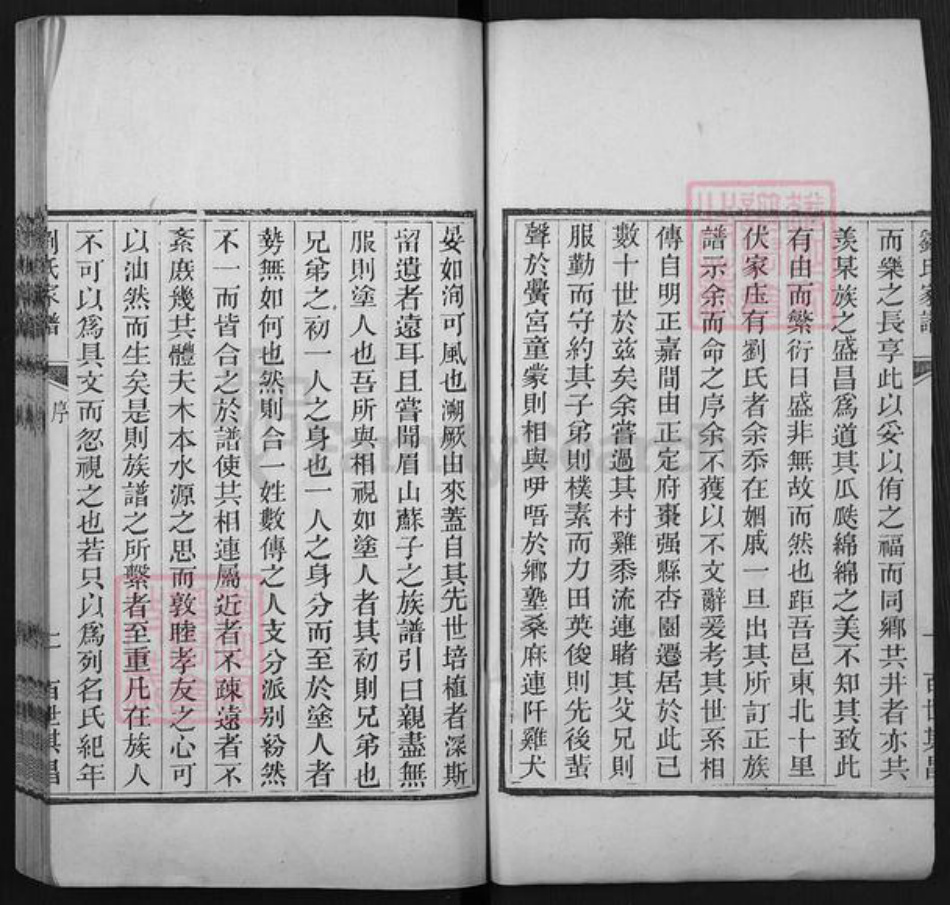 劉氏家譜
一
百世其昌
而樂之長享此以妥以侑之福而同鄉共井者亦共
羨某族之盛昌爲道其瓜瓞綿綿之美不知其致此
有由而繁衍日盛非無故而然也距吾邑東北十里
伏家庄有劉氏者余忝在姻戚一旦出其所訂正族
譜示余而命之序余不獲以不文辭爰考其世系相
傳自明正嘉間由正定府棗强縣杏園遷居於此已
數十世於兹矣余嘗過其村雞黍流連睹其父兄則
服勤而守約其子弟則樸素而力田英俊則先後蜚
聲於黌宮童蒙則相與咿唔於鄉塾桑麻連阡雞犬
晏如洵可風也溯厥由來蓋自其先世培植者深斯
留遺者遠耳且嘗聞眉山蘇子之族譜引曰親盡無
服則塗人也吾所與相視如塗人者其初則兄弟也
兄弟之初一人之身也一人之身分而至於塗人者
勢無如何也然則合一姓數傳之人支分派别紛然
不一而皆合之於譜使共相連屬近者不疎遠者不
紊庶幾共體夫木本水源之思而敦睦孝友之心可
以油然而生矣是則族譜之所繫者至重凡在族人
不可以爲具文而忽視之也若只以爲列名氏紀年
劉氏家譜
序
二
百世其昌
FamilySearch